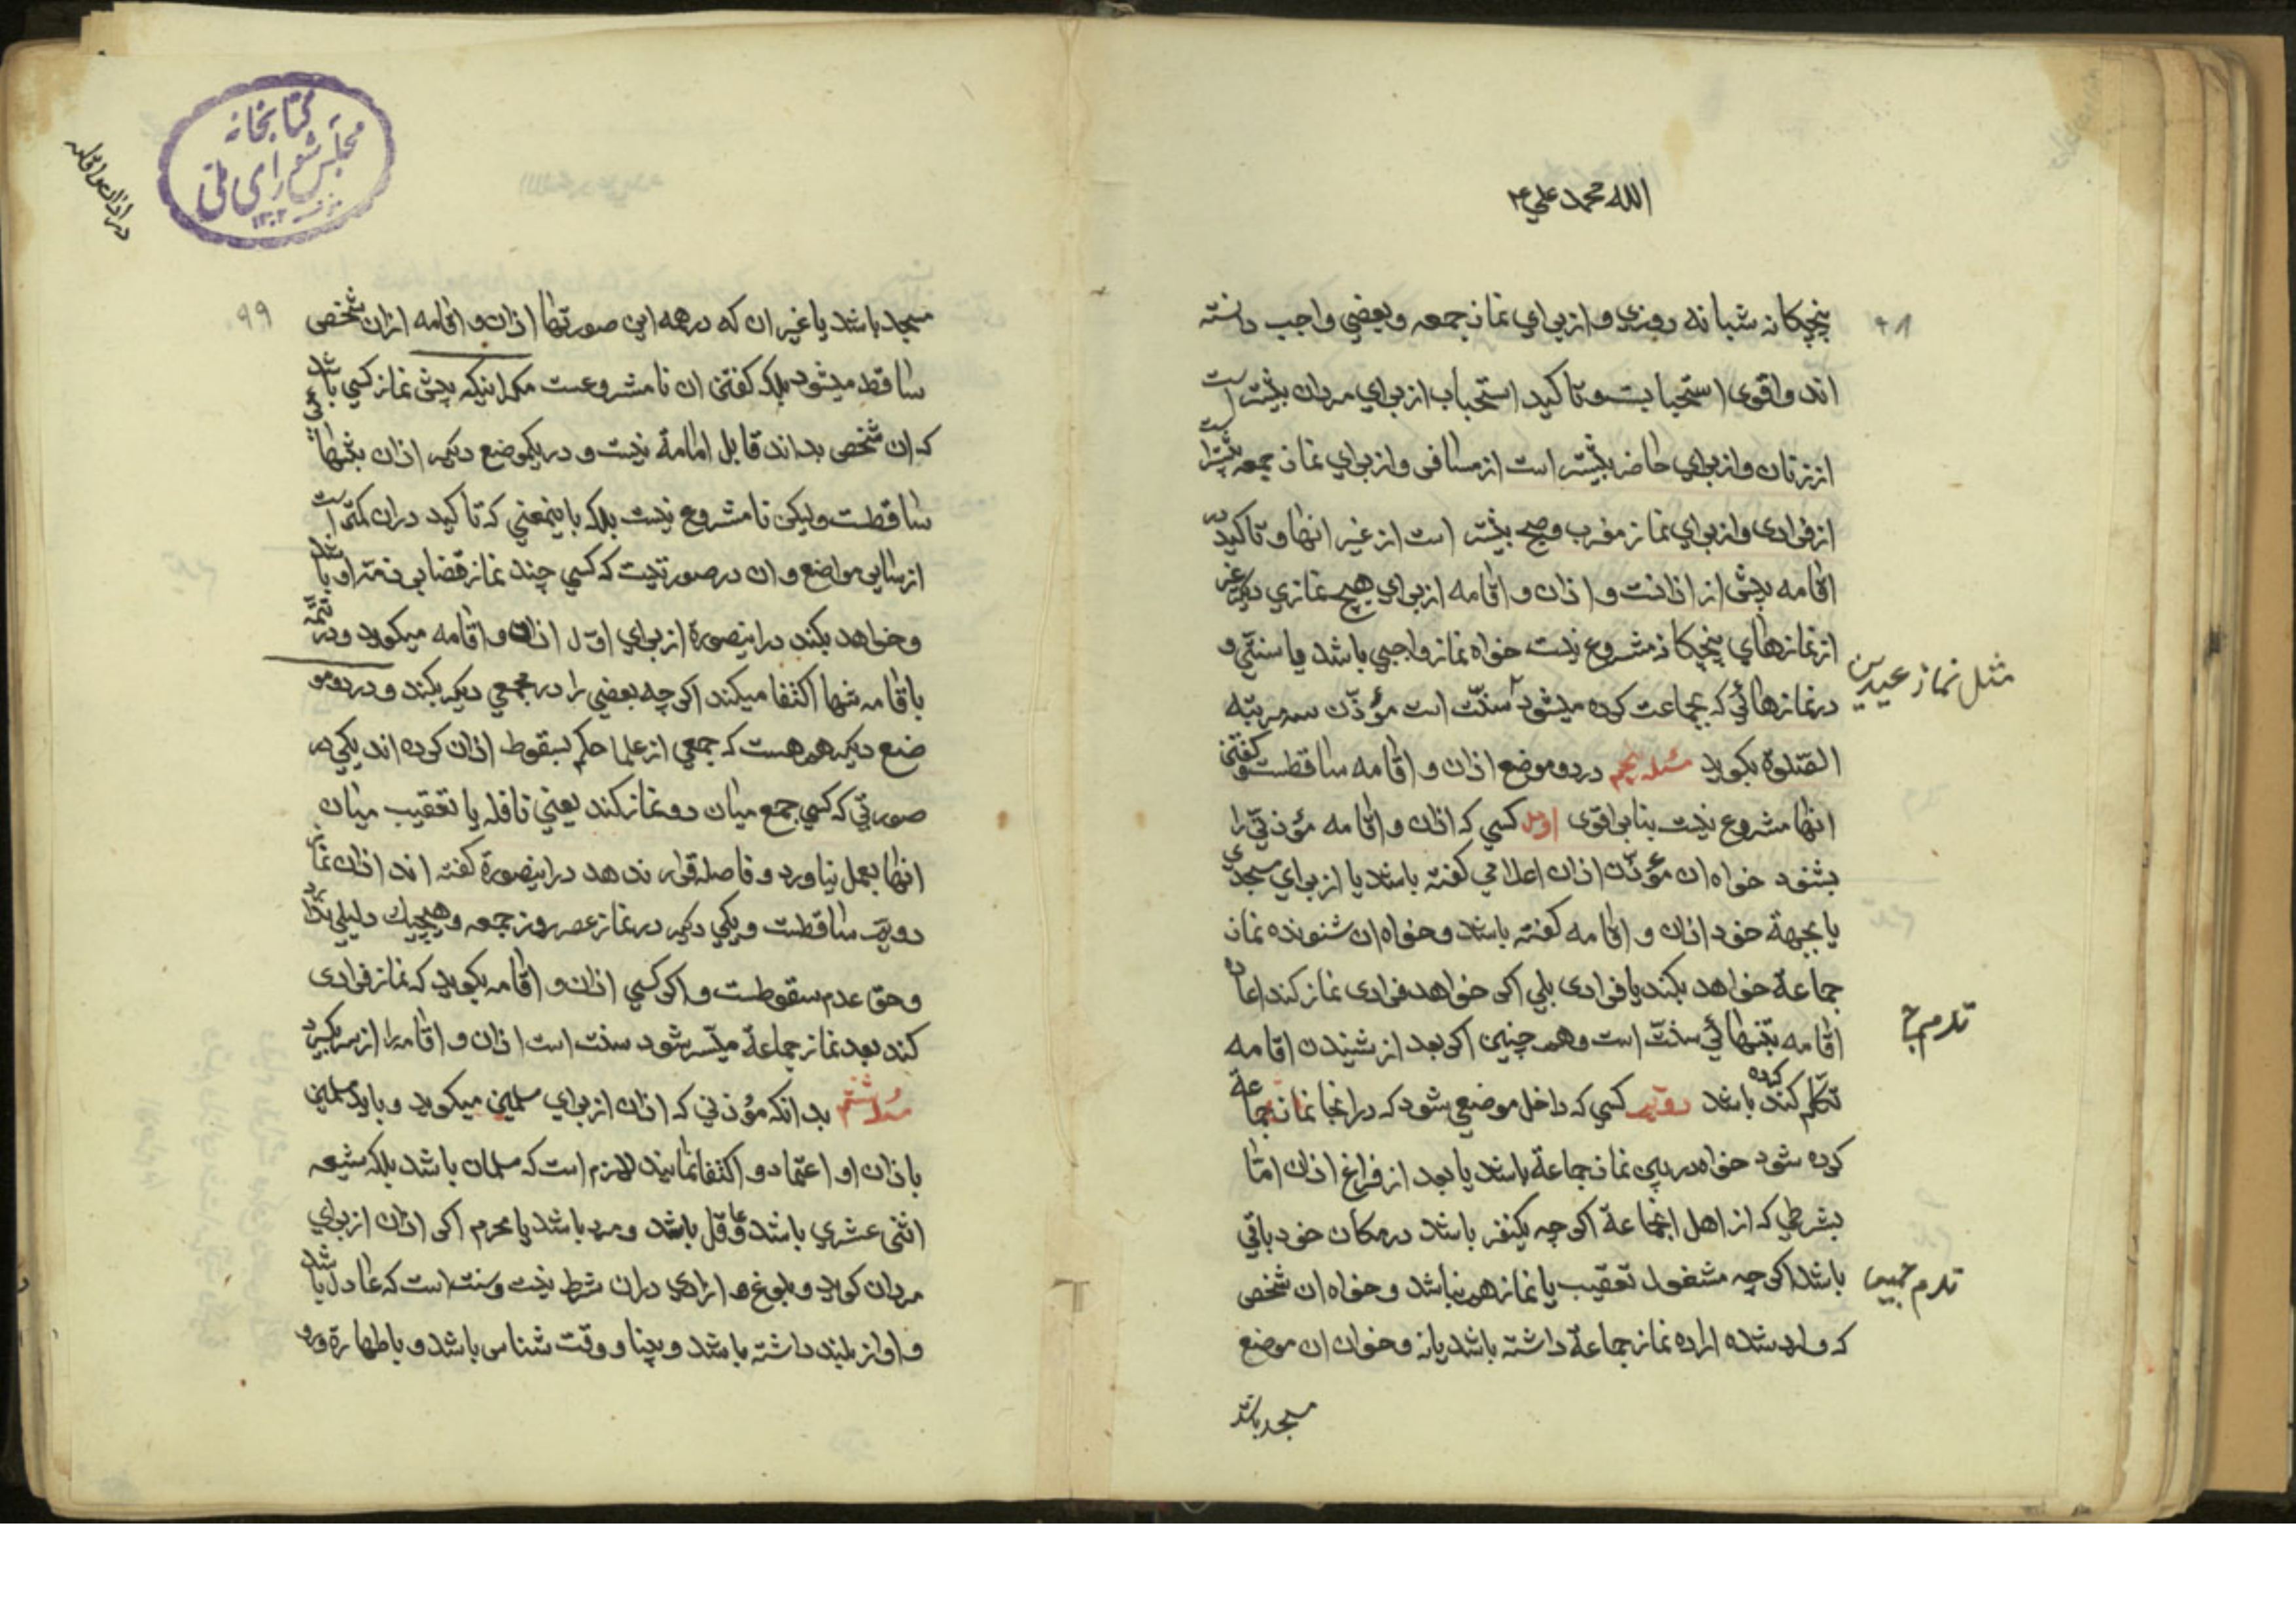 الله محمد علي ۴
۹۸
پنجکانه شبانه روزي و از براي نماز جمعه و بعضي واجب دانسته
اند و اقوی استحبابست و تاکید استحباب از براي مردان بیشتر است
از زنان و از براي حاضر بیشتر است از مسافر و از براي نماز جمعه بیشتر است
از فرادی و از براي نماز مغرب و صبح بیشتر است از غیر انها و تاکید در
اقامه بیش از اذانست و اذان و اقامه از براي هیچ نمازي دیگر غیر
از نمازهاي پنجکانه مشروع نیست خواه نماز واجبي باشد یا سنتي و
مثل نماز عیدین
در نمازهائي که بجماعت کرده میشود سنّت است مؤذّن سه مرتبه
الصّلوة بکوید مسئله پنجم در دو موضع اذان و اقامه ساقطست و کفتن
انها مشروع نیست بنا بر اقوی اول کسي که اذان و اقامه مؤذني را
بشنود خواه ان مؤذّن اذان اعلامي کفته باشد یا از براي مسجدي
یا بجهة خود اذان و اقامه کفته باشد و خواه ان شنونده نماز
جماعة خواهد بکند یا فرادی بلي اکر خواهد فرادی نماز کند اعاده
اقامه بتنهائي سنّت است و هم چنین اکر بعد از شنیدن اقامه
تکلم کرده باشد دویم کسي که داخل موضعي شود که در انجا نماز جماعة
کرده شود خواه در پي نماز جماعة باشد یا بعد از فراغ از ان امّا
بشرطي که از اهل انجماعة اکر چه یکنفر باشد در مکان خود باقي
باشد اکر چه مشغول تعقیب یا نماز هم نباشد و خواه ان شخص
که وارد شده اراده نماز جماعة داشته باشد یا نه و خواه ان موضع
مسجد باشد
کتابخانه
مجلس شورای ملی
۱۳۰۲
در اذان و اقامه
۹۹
مسجد باشد یا غیر ان که در همه این صورتها اذان و اقامه از ان شخص
ساقط میشود بلکه کفتن ان نا مشروعست مکر اینکه پیش نماز کسي باشد
که ان شخص بداند قابل امامة نیست و در یکموضع دیکر اذان بتنهائي
ساقطست ولیکن نا مشروع نیست بلکه باینمعني که تاکید در ان کمتر است
از سایر مواضع و ان در صورتیست که کسي چند نماز قضا بر ذمّه او باشد
و خواهد بکند در اینصورة از براي اوّل اذان و اقامه میکوید و در تتمّه
باقامه تنها اکتفا میکند اکر چه بعضي را در مجمعي دیکر بکند و در دو مو
ضع دیکر هم هست که جمعي از علما حکم بسقوط اذان کرده اند یکي در
صورتي که کسي جمع میان دو نماز کند یعني نافله یا تعقیب میان
انها بعمل نیاورد و فاصله قرار ندهد در اینصورة کفته اند اذان نماز
دویم ساقطست و یکي دیکر در نماز عصر روز جمعه و هیچیك دلیلي ندارد
و حق عدم سقوطست و اکر کسي اذان و اقامه بکوید که نماز فرادی
کند بعد نماز جماعة میسّر شود سنت است اذان و اقامه را از سر بکیرد
مسئله ششم بدانکه مؤذني که اذان از براي مسلمین میکوید و باید مسلمین
باذان او اعتماد و اکتفا نمایند لازم است که مسلمان باشد بلکه شیعه
اثني عشري باشد و عاقل باشد و مرد باشد یا محرم اکر اذان از براي
مردان کوید و بلوغ و ازادي در ان شرط نیست و سنت است که عادل باشد
و اواز بلند داشته باشد و بینا و وقت شناس باشد و باطهارة و رو